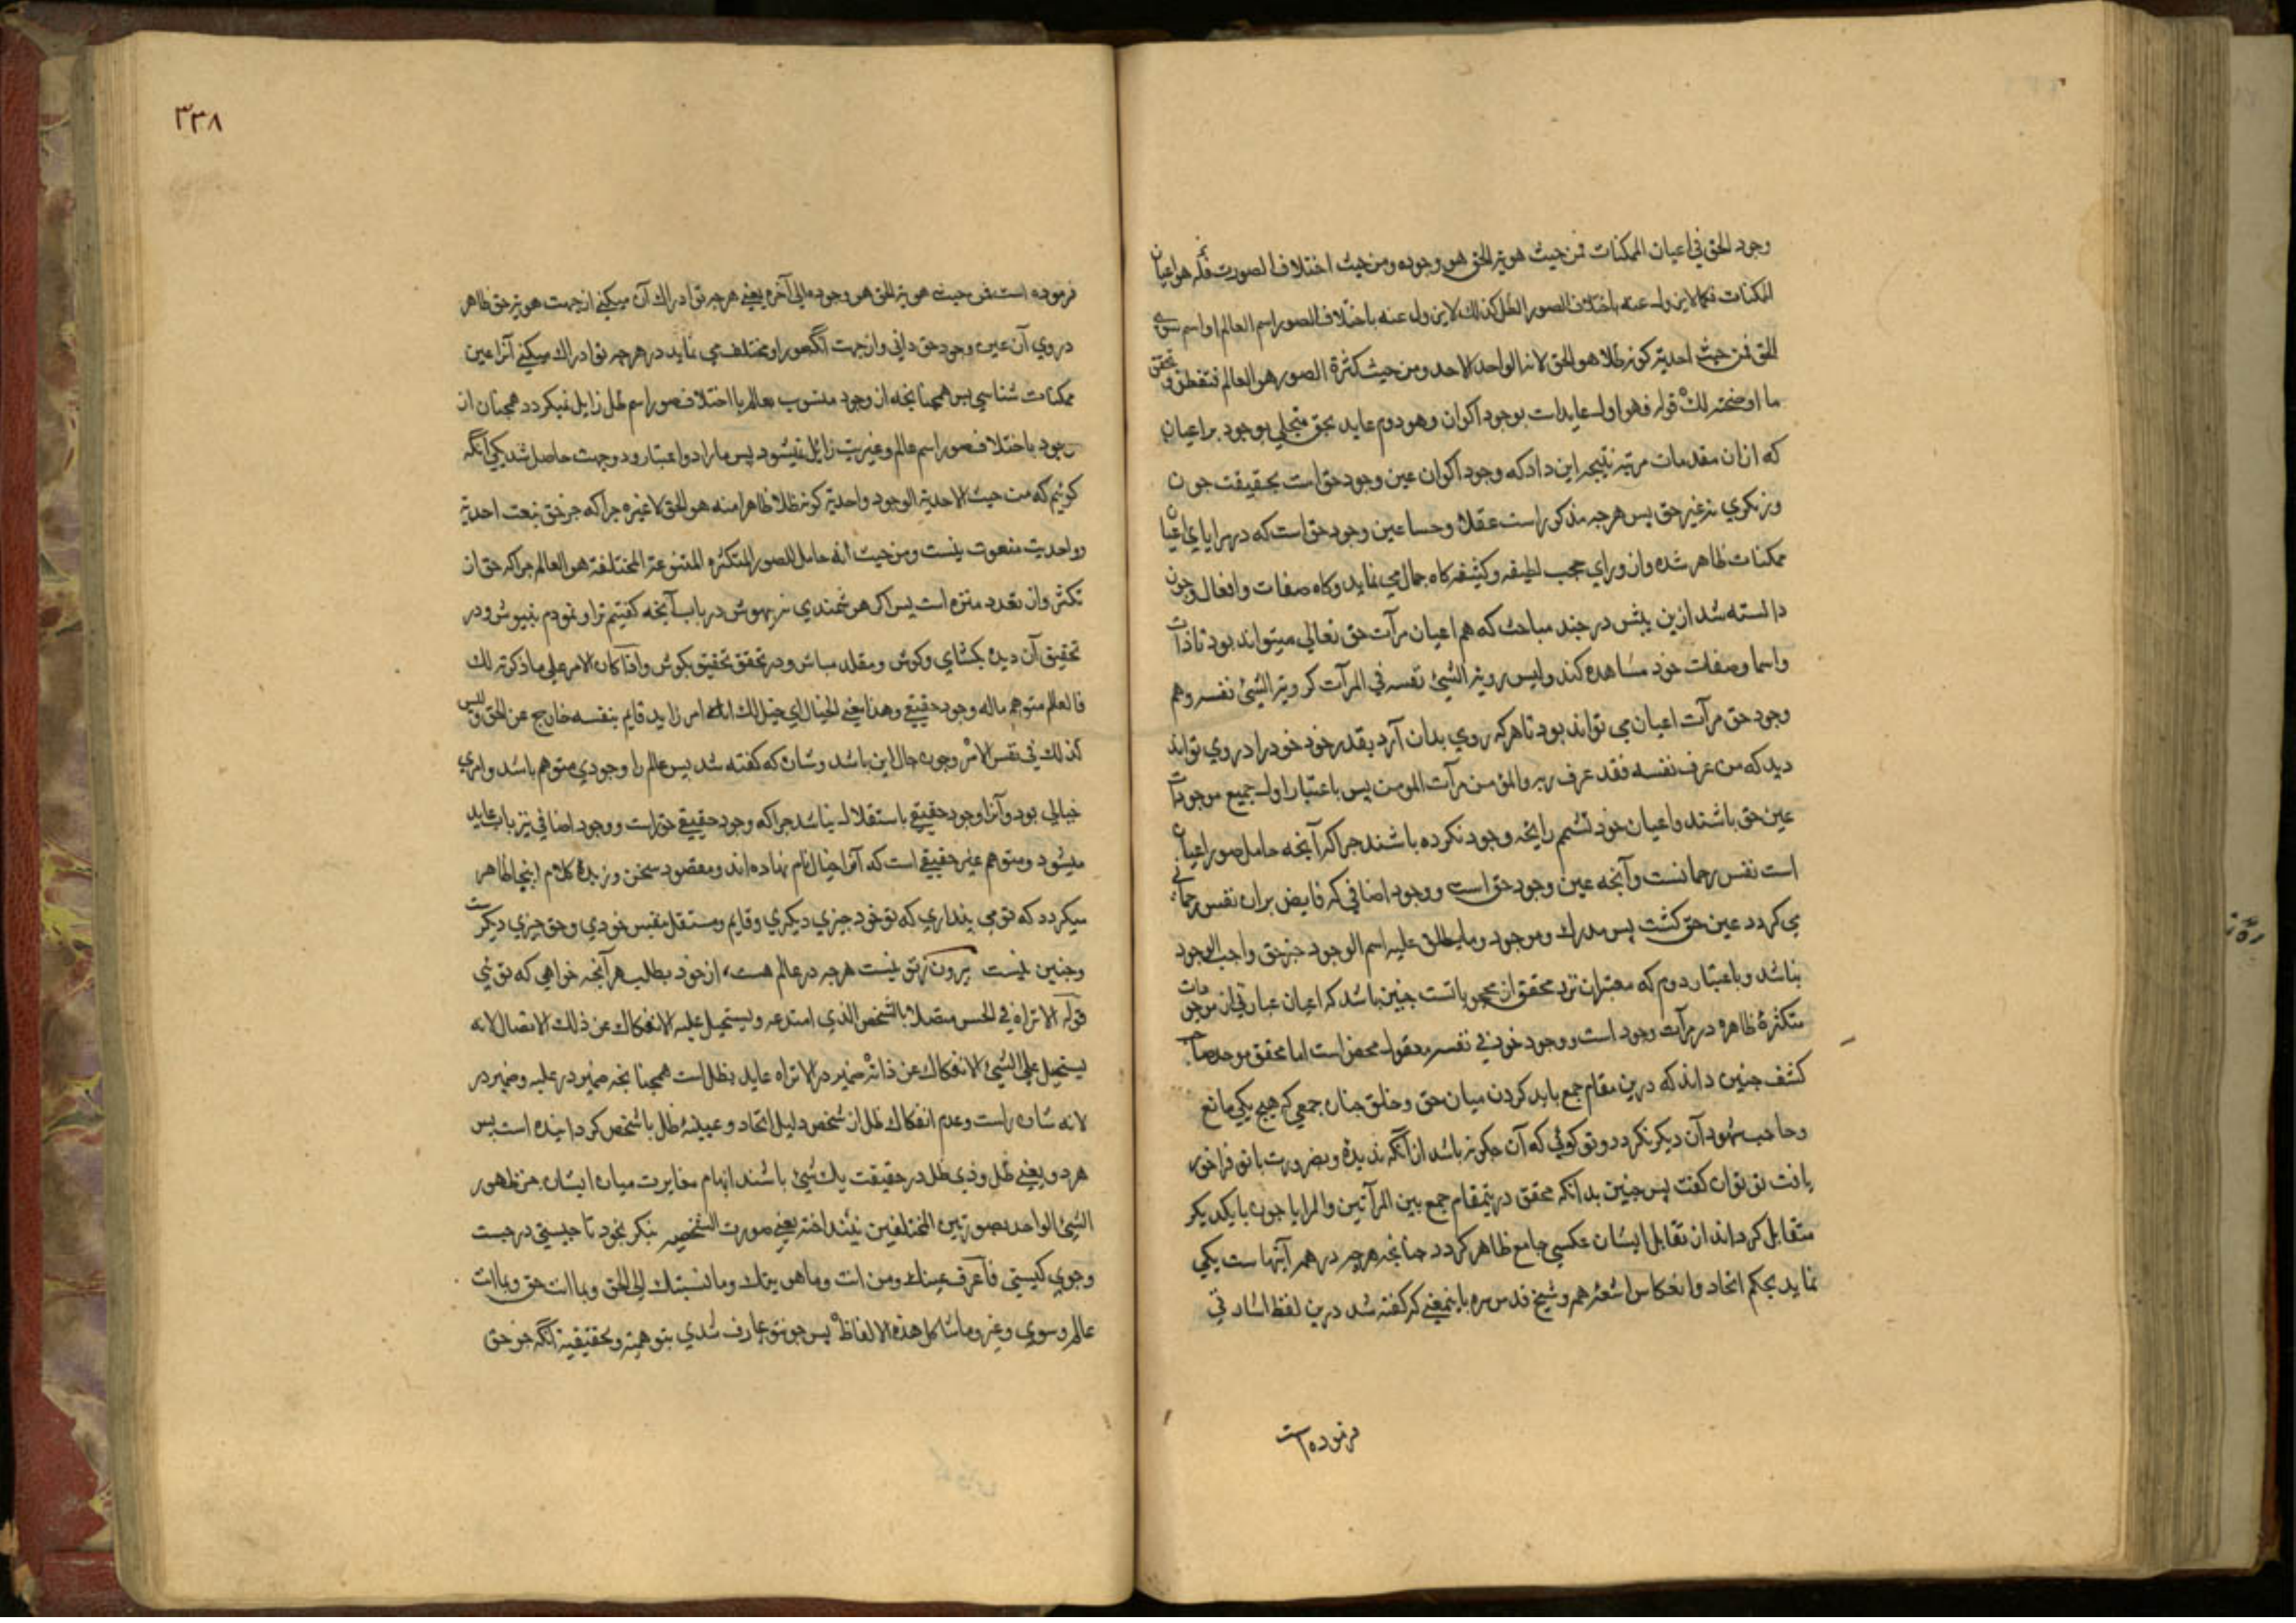 وجود الحق في اعیان الممکنات فمن حیث هویة الحق هو وجوده ومن حیث اختلاف الصورت فیه هو اعیان
الممکنات فکما لا یزول عنه باختلاف الصور اسم الظل کذلک لا یزول عنه باختلاف الصور اسم العالم او اسم سوی
الحق فمن حیث احدیة کونه ظلا هو الحق لانه الواحد الاحد ومن حیث کثرة الصور هو العالم فتفطن و تحقق
ما اوضحته لک قوله فهو اول عایدات بوجود اکوان وهو دوم عاید بحق متجلی بوجود بر اعیان
که ازان مقدمات مرتبه نتیجه این داد که وجود اکوان عین وجود حق است بحقیقت جون
وز نکری نه غیر حق پس هرجه مذکور است عقلا وحسا عین وجود حق است که در مرایای اعیان
ممکنات ظاهر شده واز ورای حجب لطیفه وکثیفه کاه جمال می نماید وکاه صفات وافعال وجون
دانسته شد ازین پیش در جند مباحث که هم اعیان مرآت حق تعالی میتواند بود تا ذات
واسما وصفات خود مشاهده کند ولیس رویة الشیئ نفسه فی المرآت کرویة الشیئ نفسه وهم
وجود حق مرآت اعیان می تواند بود تا هرکه روی بدان آرد بقدر خود خود را در وی تواند
دید که من عرف نفسه فقد عرف ربه والمؤمن مرآت المومن پس باعتبار اول جمیع موجودات
عین حق باشند واعیان خود تشمم رایحه وجود نکرده باشند جرا که آنجه حامل صور اعیان
است نفس رحمانست وآنجه عین وجود حق است ووجود اضافی که فایض بران نفس رحمانی
می کردد عین حق کشت پس مدرک وموجود وما یطلق علیه اسم الوجود جز حق واجب الوجود
نباشد وباعتبار دوم که معتبران نزد محقق از محجوبانست جنین باشد که اعیان عبارتی از موجودات
متکثرۀ ظاهره در مرآت وجود است ووجود خود فی نفسه معقول محض است اما محقق موحد صاحب
کشف جنین داند که درین مقام جمع باید کردن میان حق وخلق جنان جمعی که هیج یکی مانع
وحاجب شهود آن دیکر نکردد وتو کوئی که آن جکونه باشد ازآنکه ندیدۀ وبضرورت با تو فراخور
یافت تو توان کفت پس جنین بدانکه محقق درینمقام جمع بین المرآتین والمرایا جون با یکدیکر
متقابل کرداند از تقابل ایشان عکسی جامع ظاهر کردد جنانجه هرجه در همه آینهاست یکی
نماید بحکم اتحاد وانعکاس اشعۀ هم وشیخ قدس سره باینمعنی که کفته شد درین لفظ اشارتی
فرموده است
٣٣٨
فرموده است فمن حیث هویة الحق هو وجوده الی آخره یعنی هرجه تو ادراک آن میکنی از جهت هویة حق ظاهر
در وی آن عین وجود حق دانی واز جهت آنکه صور او مختلف می نماید در هرجه تو ادراک میکنی آنرا عین
ممکنات شناسی پس همجنانجه از وجود منسوب بعالم با اختلاف صور اسم ظل زایل نمیکردد همجنان از
وجود باختلاف صور اسم عالم وغیریت زائل نمیشود پس ما را دو اعتبار ودوجهت حاصل شد یکی آنکه
کوئیم که من حیث الاحدیة الوجود واحدیة کونه ظلا ظاهرا منه هو الحق لا غیره جرا که جز حق بنعت احدیة
وواحدیت منعوت نیست ومن حیث انه حامل للصور المتکثره المتنوعة المختلفة هو العالم جرا که حق از
تکثر واز تعدد منزه است پس اکر هوشمندی نه بیهوش دریاب آنجه کفتیم ترا ونمودم بنیوش ودر
تحقیق آن دیده بکشای وکوش ومقلد مباش ودر تحقق تحقیق بکوش واذا کان الامر علی ما ذکرته لک
فالعالم متوهم ماله وجود حقیقی وهذا یعنی الخیال ای خیل لک انه امر زاید قایم بنفسه خارج عن الحق ولیس
کذلک فی نفس الامر وجون حال این باشد وشان که کفته شد پس عالم را وجودی متوهم باشد وامری
خیالی بود وآنرا وجود حقیقی باستقلال نباشد جرا که وجود حقیقی حق است ووجود اضافی نیز باب عاید
میشود ومتوهم غیر حقیقی است که آنرا خیال نام نهاده اند ومقصود سخن وزبدۀ کلام اینجا ظاهر
میکردد که تو می پنداری که تو خود جیزی دیکری وقایم ومستقل بنفس خودی وحق جیزی دیکرست
وجنین نیست بیرون ز تو نیست هرجه در عالم هست، از خود بطلب هر آنجه خواهی که توئی
قوله الا تراه فی الحس متصلا بالشخص الذی امتد عنه ویستحیل علیه الانفکاک عن ذلک الاتصال لانه
یستحیل علی الشیئ الانفکاک عن ذاته ضمیر در الا تراه عاید بظل است همجنانجه ضمیر در علیه وضمیر در
لانه شان راست وعدم انفکاک ظل از شخص دلیل اتحاد وعینیۀ ظل با شخص کردانیده است پس
هردو یعنی ظل وذی ظل در حقیقت یک شیئ باشند ابهام مغایرت میان ایشان جز ظهور
الشیئ الواحد بصورتین المختلفین نینداخته یعنی صورت الشخصیه بنکر بخود تا جیستی در جست
وجوی کیستی فاعرف عینک ومن انت وما هویتک وما نسبتک الی الحق وبما انت حق وبما انت
عالم وسوی وغیر وما شاکل هذه الالفاظ پس جون تو عارف شدی بتوهمیة وبحقیقیة آنکه جز حق